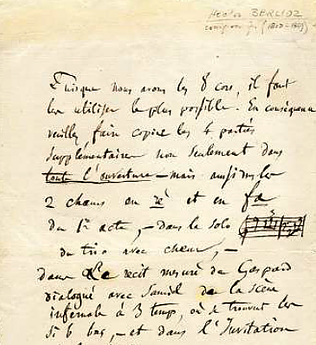 Hector BERLIOZ
compositeur fr. (1803-1869)
Puisque nous avons les 8 cors, il faut
les utiliser le plus possible. En conséquence
veuillez faire copier les 4 parties
supplémentaires non seulement dans
toute l'ouverture – mais aussi dans les
2 chœurs en ré et en fa
du 1er acte, – dans le solo
du trio avec chœur, –
dans le récit mesuré de Gaspard
dialogué avec Samiel de la scène
infernale à 3 temps, où se trouvent les
si b bas, – et dans l'Invitation